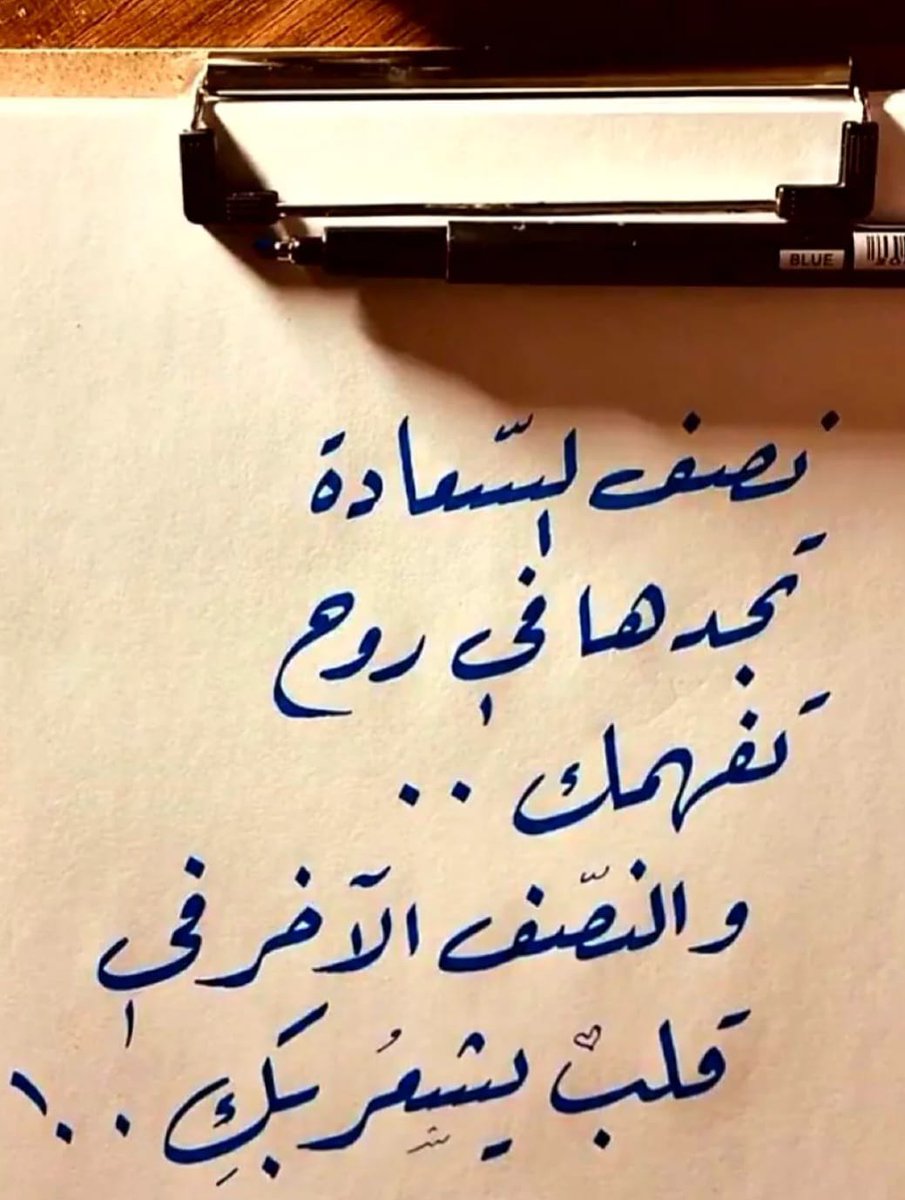 BLUE
نصف السّعادة
تجدها في روح
تفهمك ..
والنصّف الآخر في
قلبٌ يشعُر بكِ ..!